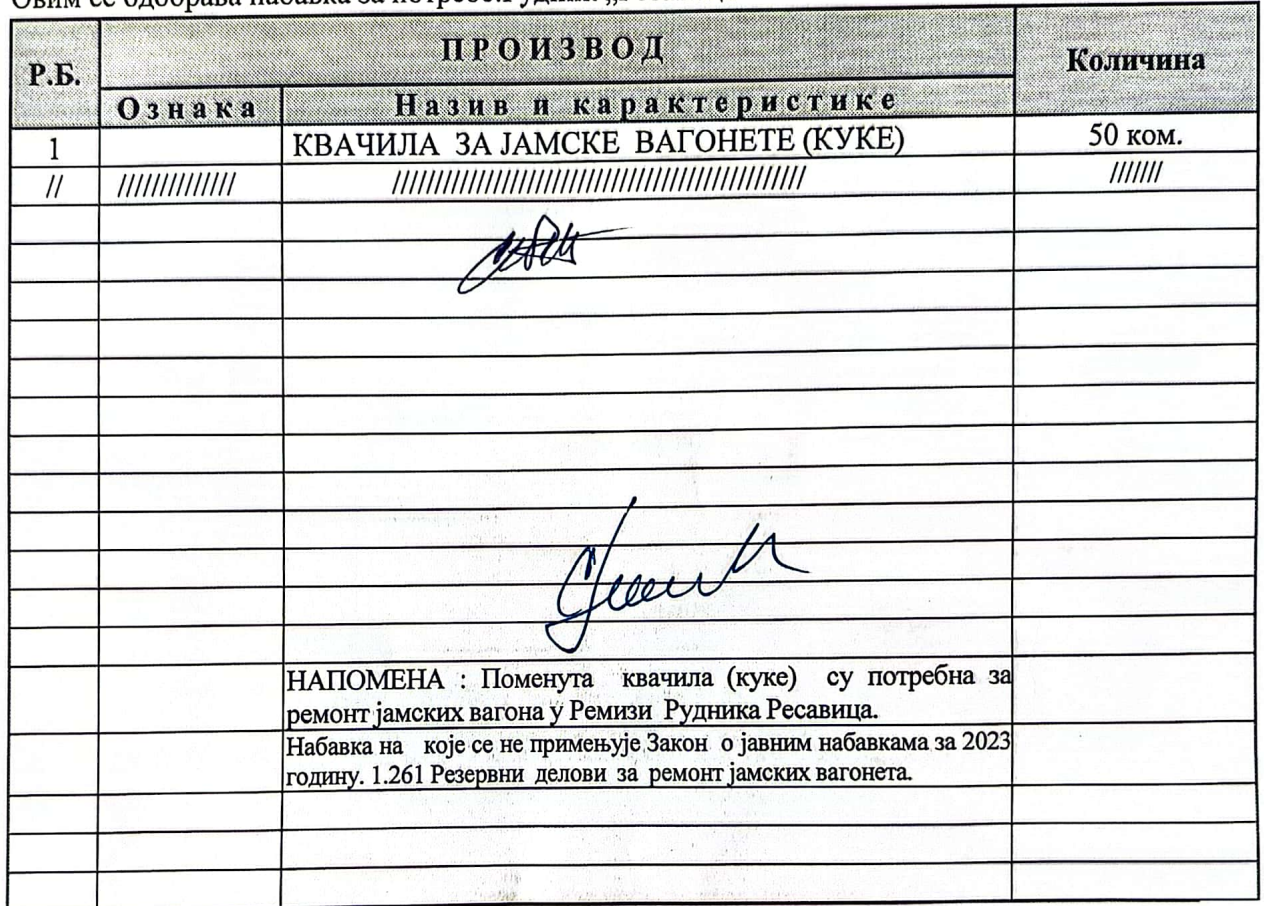 Овим се одобрава набавка за потребе
ПРОИЗВОД
Р.Б.
Количина
Ознака
Назив и карактеристике
1
КВАЧИЛА ЗА ЈАМСКЕ ВАГОНЕТЕ (КУКЕ)
50 ком.
// ////////////// /////////////////////////////////////////////// ///////
НАПОМЕНА : Поменута квачила (куке) су потребна за
ремонт јамских вагона у Ремизи Рудника Ресавица.
Набавка на које се не примењује Закон о јавним набавкама за 2023
годину. 1.261 Резервни делови за ремонт јамских вагонета.